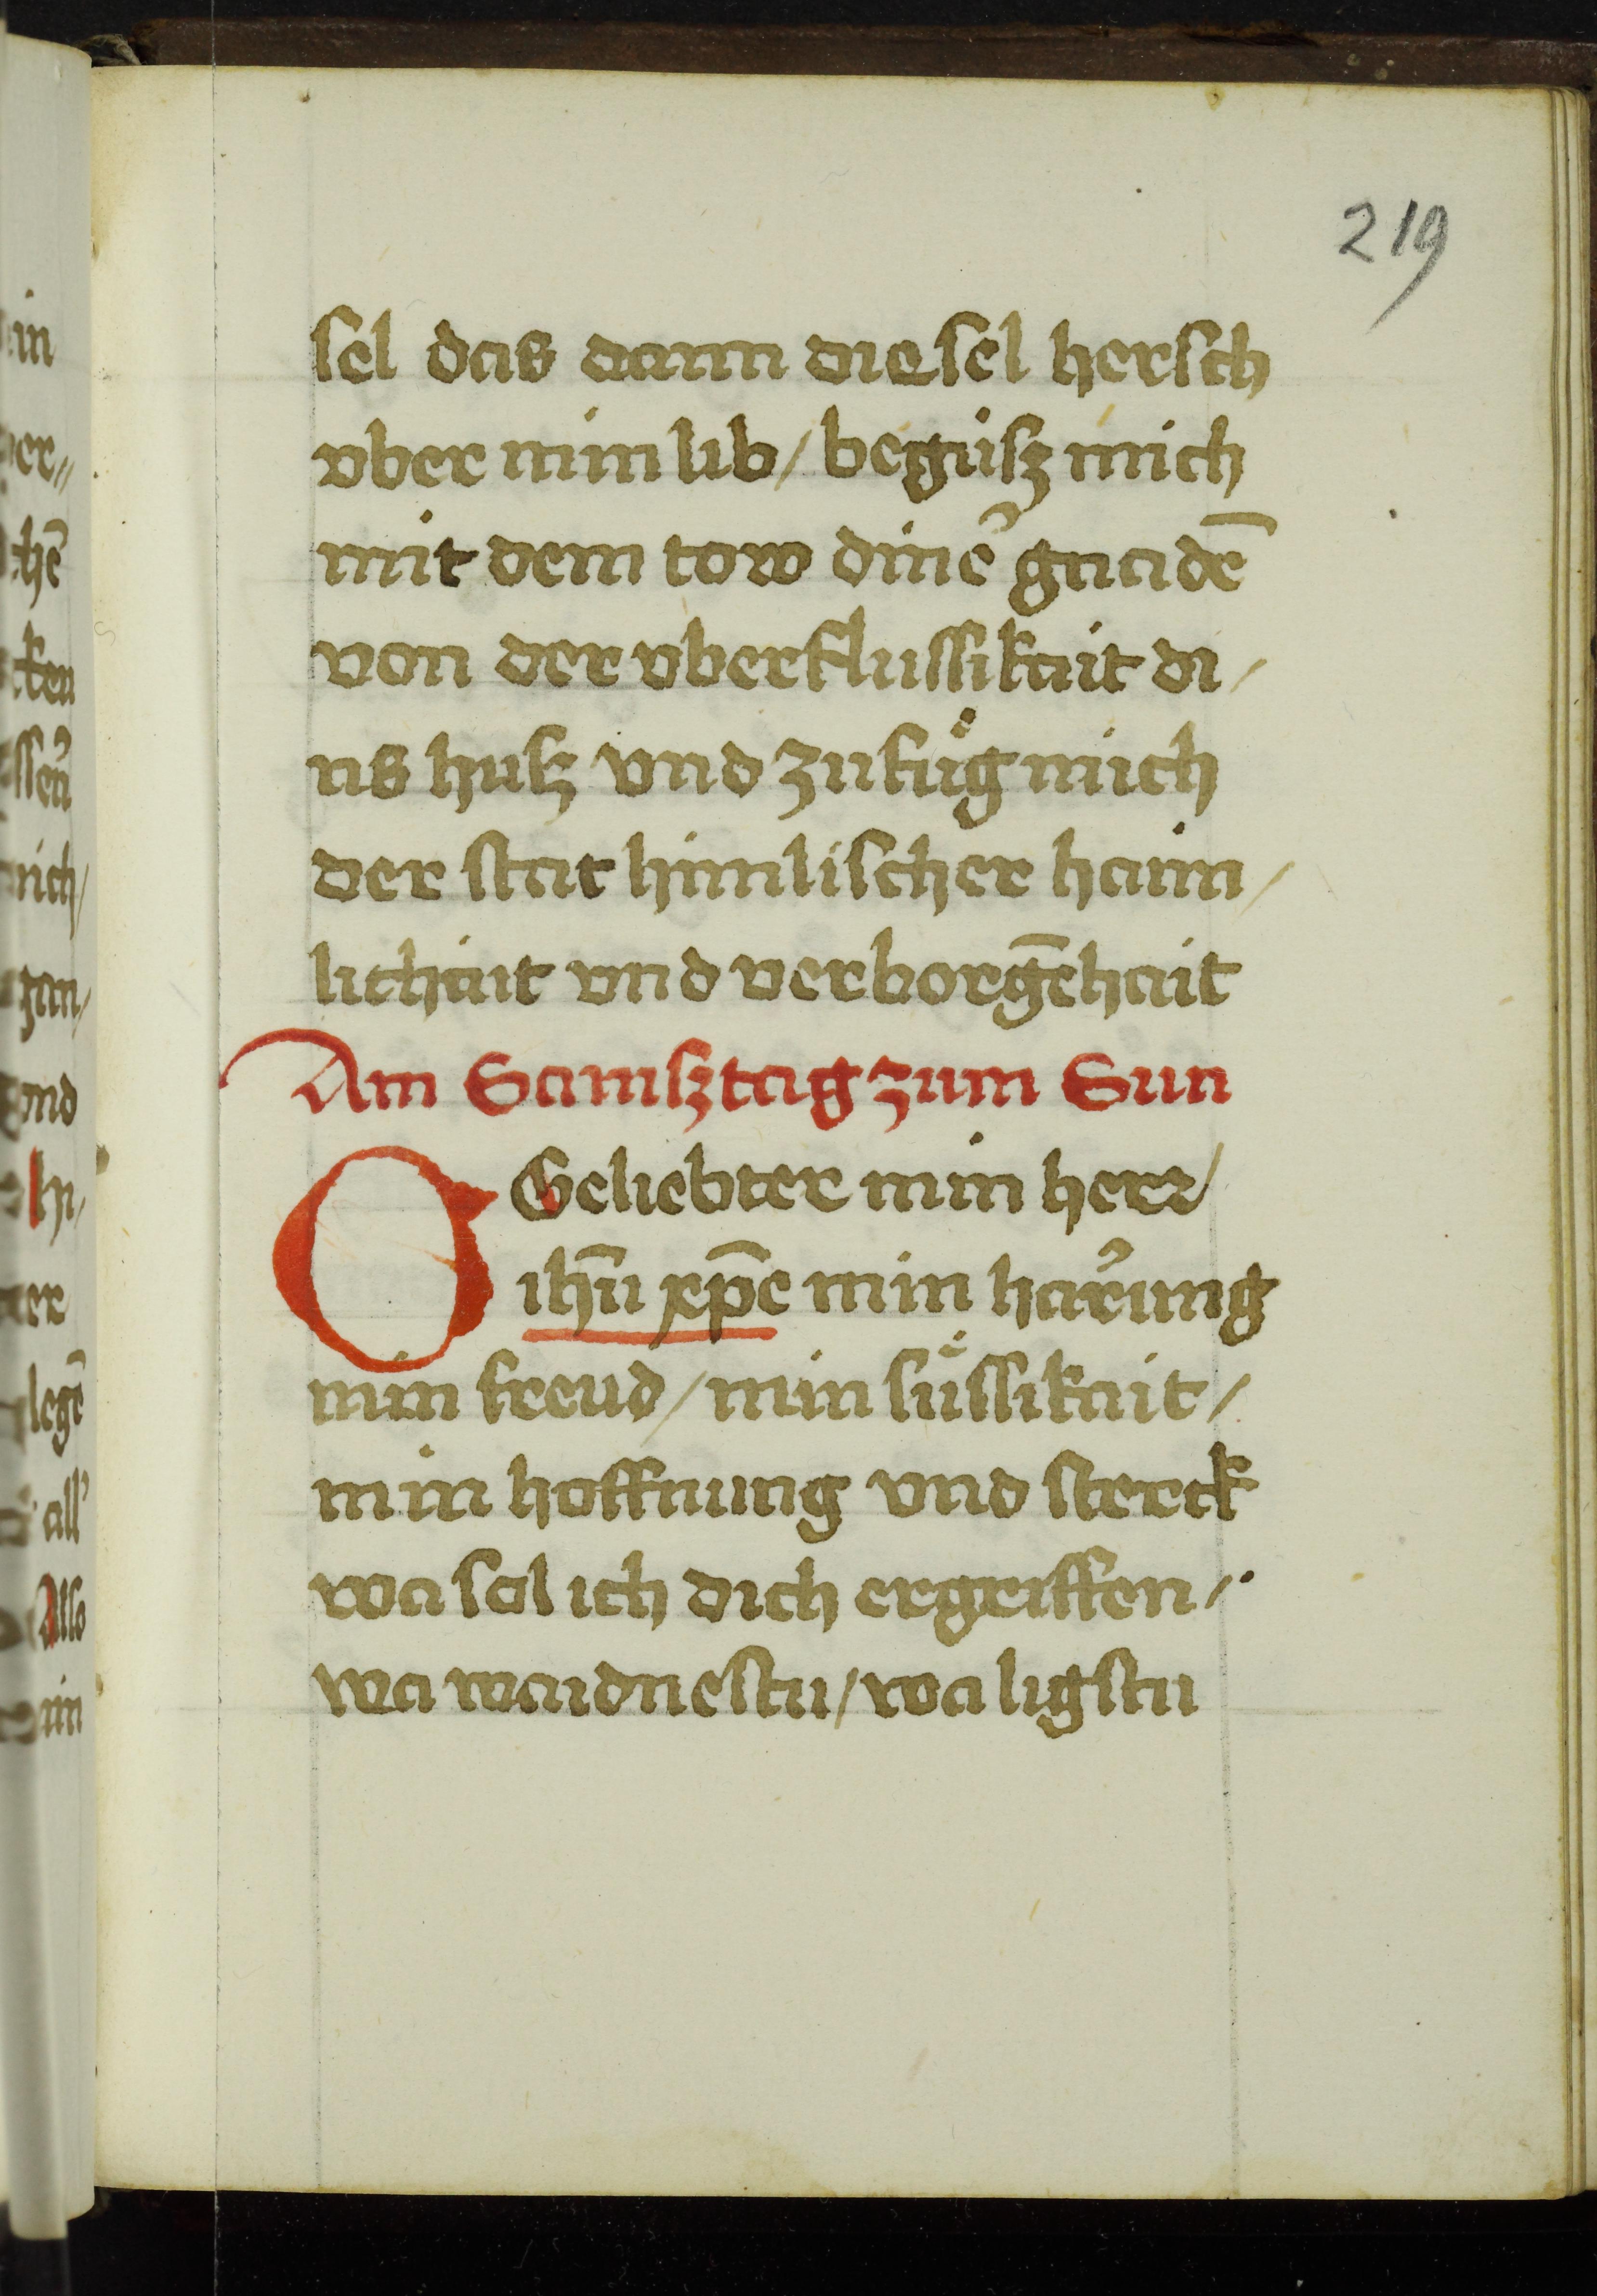 219
sel das dann die sel hersch
vber min lib / begüsz mich
mit dem tow dineꝛ᷑ gnadē
von der vberflussikait di /
ns husz vnd zufuͤg mich
der stat himlischer haim /
lichait vnd verborgēhait
Am Samsztag zum Sun
O Geliebter min herr /
ihū xp̄e min harung
min freud / min suͤssikait /
min hoffnung vnd sterck
wa sol ich dich ergriffen /
wa waidnestu / wa ligstu